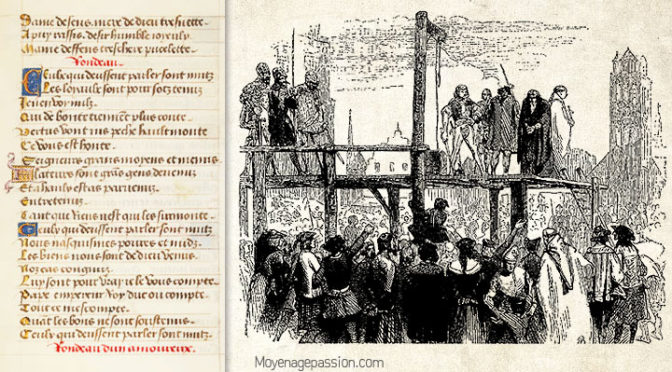 Dame de sens, mere de dieu
humble
treschere pucelette
Rondeau.
Ceulx qui deussent parler sont mutz
Les loyaulx sont pour sotz tenuz
Jen en voy nulz
Qui de bonte tiennent plus conte
Vertus vont ius peche hault monte
Ce vous est honte
Seigneurs grans moyens et menus
Flateurs sont grãs gens devenuz
Et a haulx estas parvenuz
Entretenuz
Tant que riens nest qui les surmonte
Ceulx qui deussent parler sont mutz
Nous nasquismes povres et nudz
Les biens nous sont de dieu venus
Noz cas congnuz
Luy sont pour vray ie le vous compte
Pape empereur roy duc ou compte
Tout ce mescompte
Quãt les bons ne sont soustenus
Ceulx qui deussent parler sont mutz
Rondeau dun amoureux.
Moyenagepassion.com